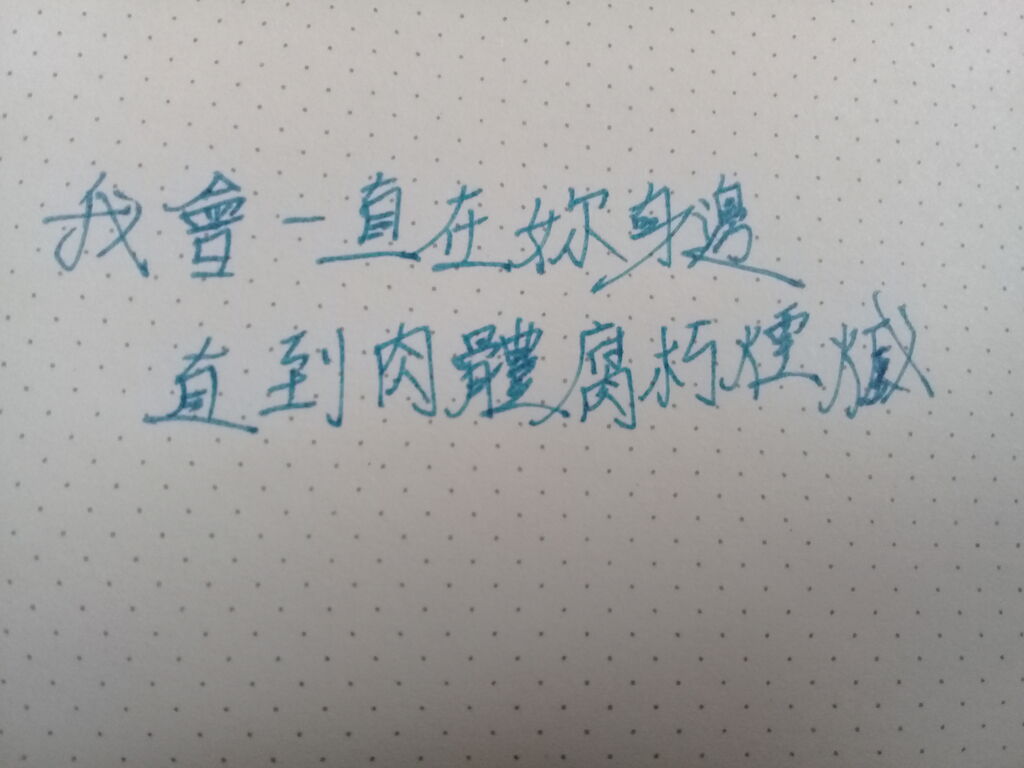 我會一直在妳身邊
直到肉體腐朽煙